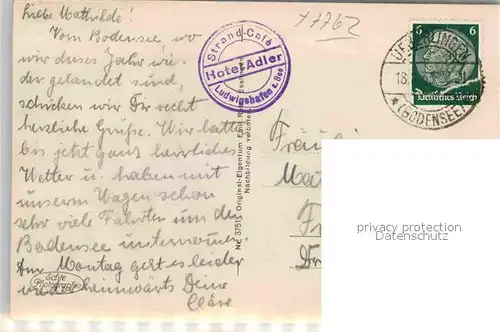 Liebe Mathilde!
Vom Bodensee, wo
wir dieses Jahr wie-
der gelandet sind,
schicken wir Dir recht
herzliche Grüße. Wir hatten
bis jetzt ganz herrliches
Wetter u. haben mit
unserm Wagen schon
sehr viele Fahrten um den
Bodensee unternommen.
Am Montag geht es leider
wieder heimwärts Deine
Cläre
Echte Photographie
77762
Strand-Café
Hotel Adler
Ludwigshafen a. See
Nr. 37515 Original-Eigentum
Nachbildung verboten
6 6
Deutsches Reich
UEBERLINGEN
18.
(BODENSEE)
Fräu
Ma
Fr
privacy protection
Datenschutz